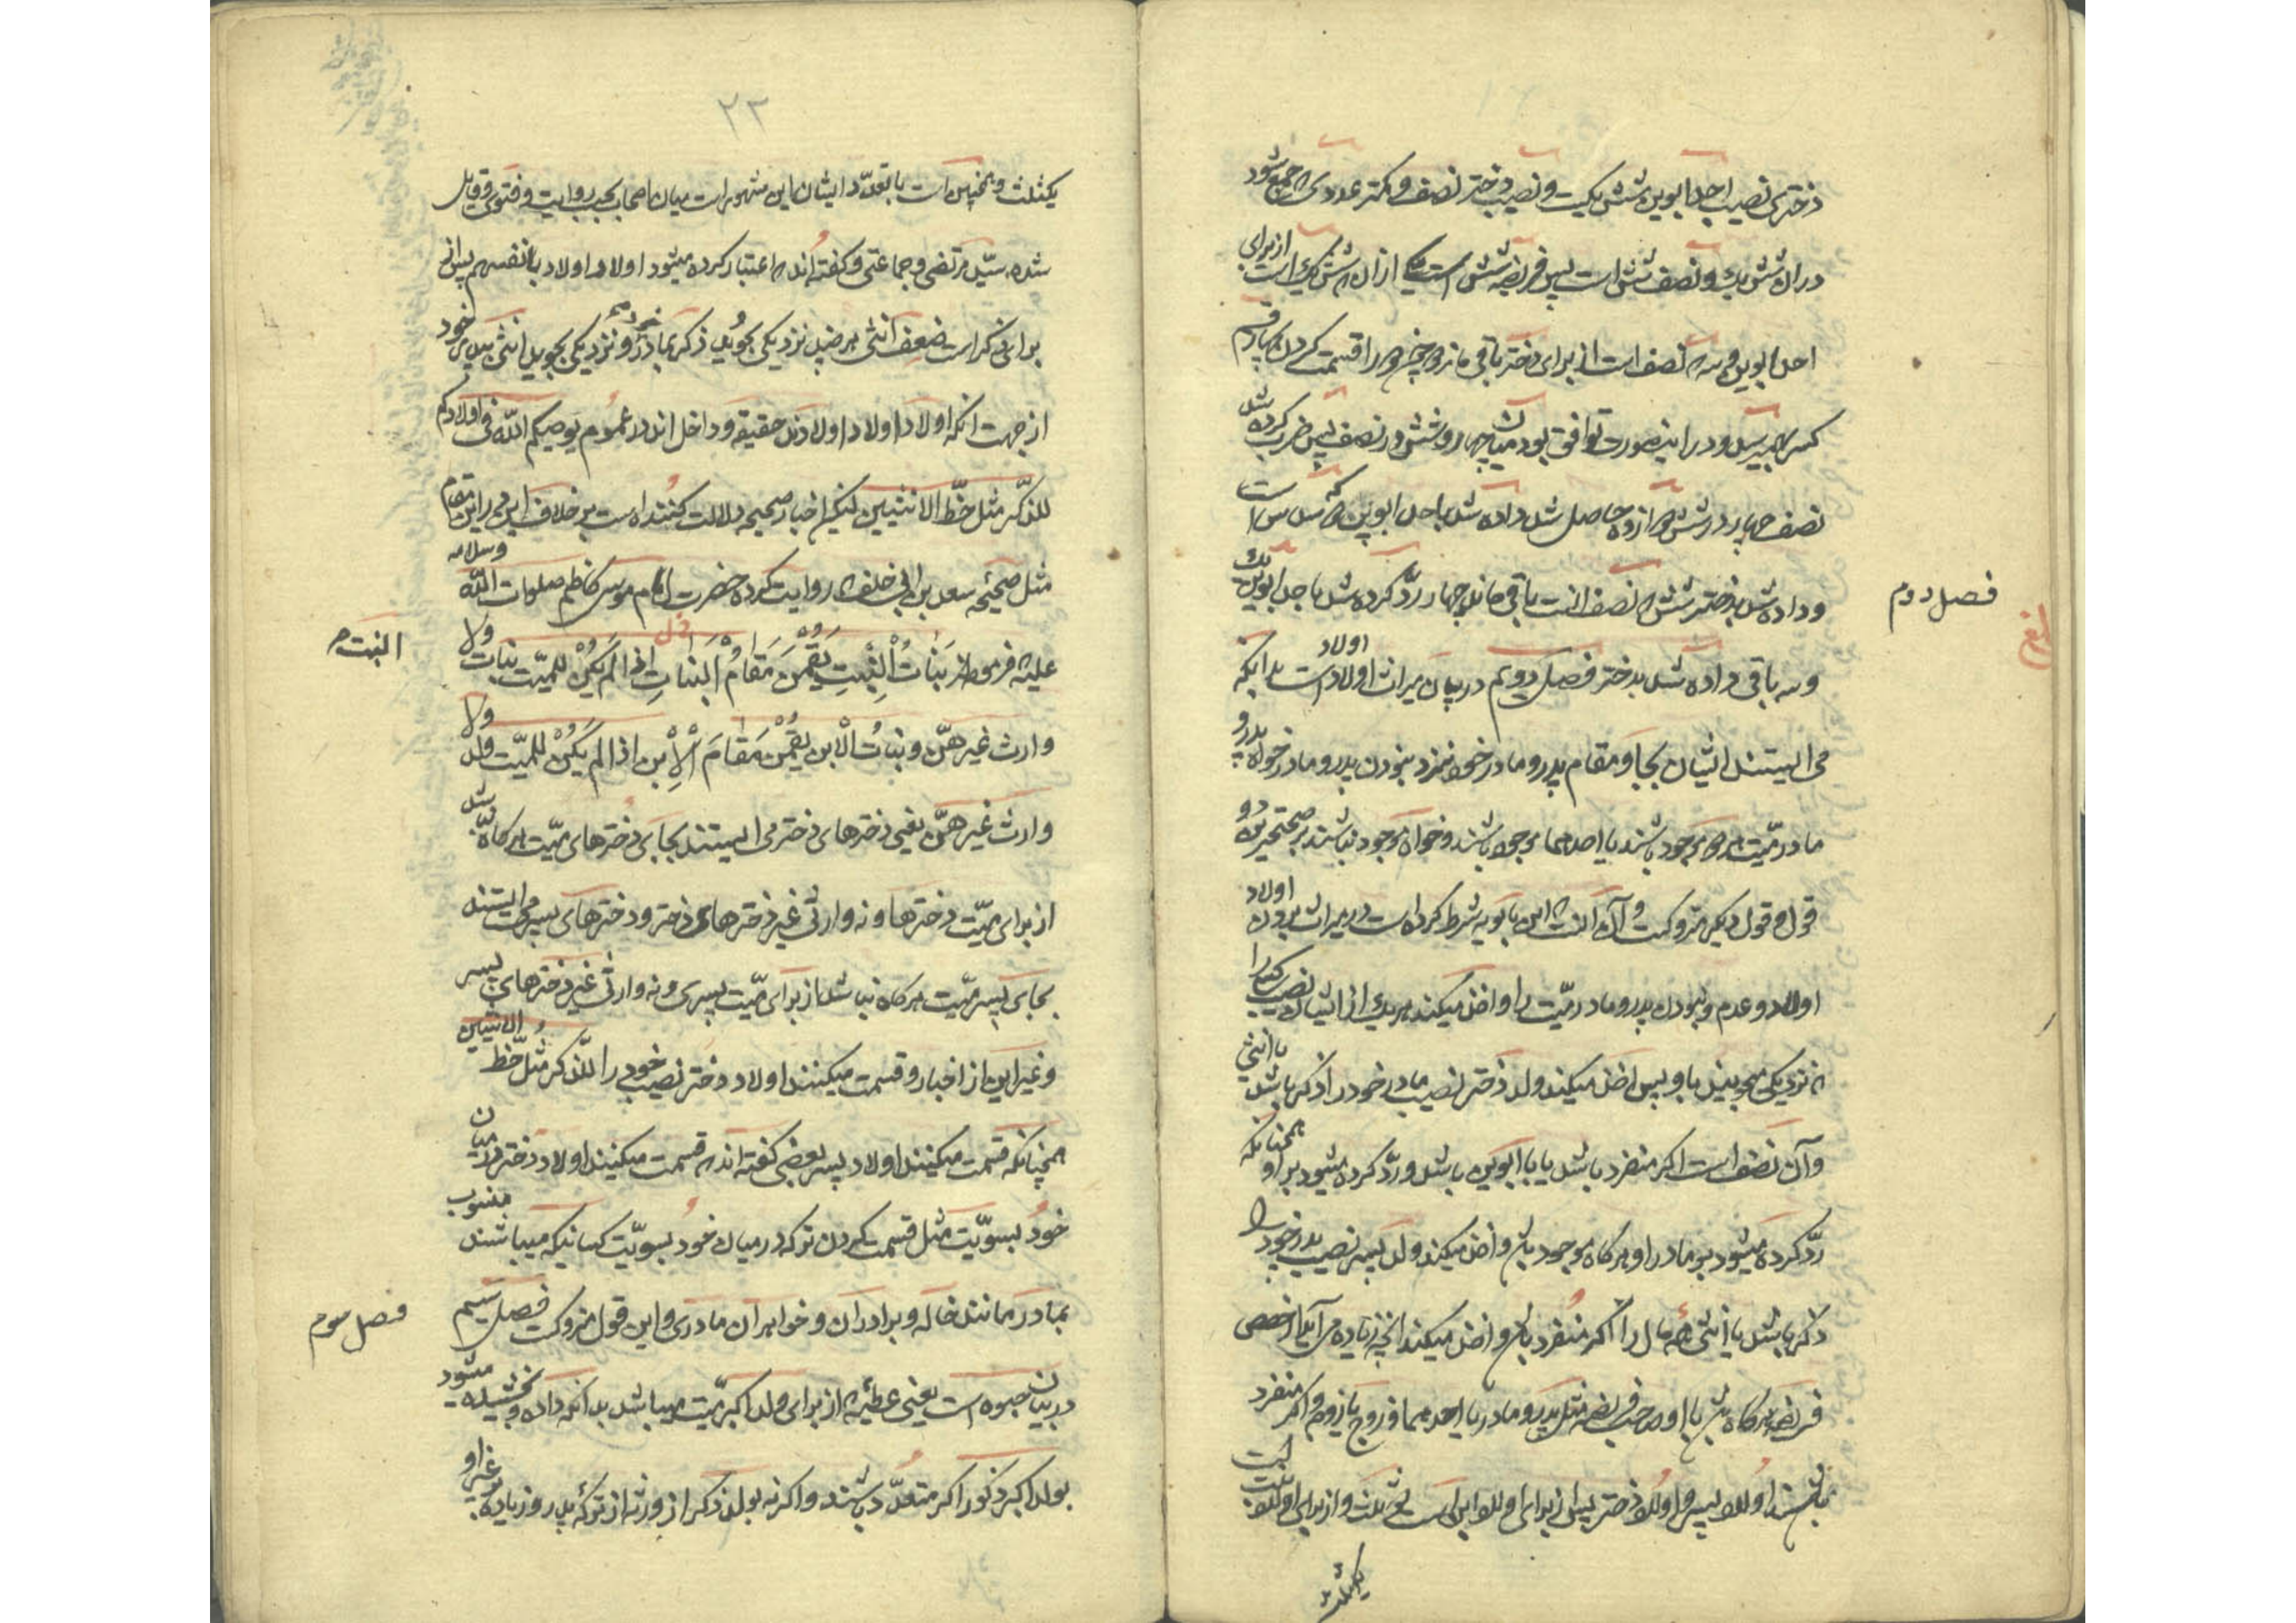 دختری نصیب احد ابوین شش یکست و نصیب دختر نصف و کمتر عددی که جمع شود
در آن شش یک و نصف شش است پس فریضه شش است یکی از آن که شش یک است از برای
احد ابوین و سه که نصف است از برای دختر باقی ماند دو
کسر بهم رسید و در اینصورت توافق بود میان چهار و شش در نصف پس ضرب کرده شد
نصف چهار در شش دوازده حاصل شد داده شد باحد ابوین دو که سدس است
و داده شد بدختر شش که نصف است باقی ماند چهار رد کرده شد باحد ابوین یک
فصل دوم
و سه باقی داده شد بدختر فصل دویم در بیان میراث اولاد اولاد است بدانکه
می ایستند ایشان بجا و مقام پدر و مادر خود نزد نبودن پدر و مادر خواه پدر و
مادر میت هر دو موجود باشند یا احدهما موجود باشند و خواه موجود نباشند بر صحیحترین دو
قول و قول دیگر متروکست و آن آنست که ابن بابویه شرط کرده است در میراث بردن اولاد
اولاد عدم و نبودن پدر و مادر میت را و اخذ میکند هر یک از ایشان نصیب کسی را
که نزدیکی میجویند باو پس اخذ میکند ولد دختر نصیب مادر خود را ذکر باشد یا انثی
و آن نصف است اگر منفرد باشد یا با ابوین باشد و رد کرده میشود بر او همچنانکه
رد کرده میشود بر مادر او هرگاه موجود باشد و اخذ میکند ولد پسر نصیب پدر خود را
ذکر باشد یا انثی همه مال را اگر منفرد باشد و اخذ میکند آنچه زیاده می آید از حصص
فریضه هرگاه باشد با او صاحب فریضه مثل پدر و مادر یا احدهما و زوج یا زوجه و اگر منفرد
باشند اولاد پسر و اولاد دختر پس از برای اولاد ابن است دو ثلث و از برای اولاد بنت است
یکثلث
۲۲
یکثلث و همچنین است با تعدد ایشان این مشهور است میان اصحاب بحسب روایت و فتوی و قایل
شده سید مرتضی و جماعتی و گفته اند که اعتبار کرده میشود اولاد اولاد بانفسهم پس از
برای ذکر است ضعف انثی هر چند نزدیکی بجوید ذکر بمادر خود و نزدیکی بجوید انثی بپدر خود
از جهت آنکه اولاد اولاد اولادند حقیقة و داخل اند در عموم یوصیکم الله فی اولادکم
للذکر مثل حظ الانثیین لیکن اخبار صحیحه دلالت کننده است بر خلاف این در این مقام
مثل صحیحه سعد بن ابی خلف که روایت کرده حضرت امام موسی کاظم صلوات الله وسلامه
علیه فرموده بَنَاتُ الْبِنْتِ يَقُمْنَ مَقَامَ الْبَنَاتِ اِذا لَمْ يَكُنْ للميّت بنات ولا
البنت م
وارث غيرهنّ و بناتُ الْابن يَقُمْنَ مَقَامَ الْاِبن اذا لم يَكُنْ للميّت ولد ولا
وارث غیرهنّ یعنی دخترهای دختر می ایستند بجای دخترهای میت هرگاه نباشد
از برای میت دخترها و نه وارثی غیر دخترهای دختر و دخترهای پسر می ایستند
بجای پسر میت هرگاه نباشد از برای میت پسری و نه وارثی غیر دخترهای پسر
و غیر این از اخبار و قسمت میکنند اولاد دختر نصیب خود را للذکر مثل حظ الانثیین
همچنانکه قسمت میکنند اولاد پسر بعضی گفته اند که قسمت میکنند اولاد دختر در میان
خود بسویت مثل قسمت کردن ترکه در میان خود بسویت کسانیکه میباشند منسوب
بمادر مانند خاله و برادران و خواهران مادری و این قول متروکست فصل سیم
فصل سوم
در بیان حبوه است یعنی عطیه که از برای ولد اکبر میت میباشد بدانکه داده و بخشیده میشود
بولد اکبر ذکور اگر متعدد باشند و اگر نه بولد ذکر از ورثه از ترکه پدر زیاده بر غیر او